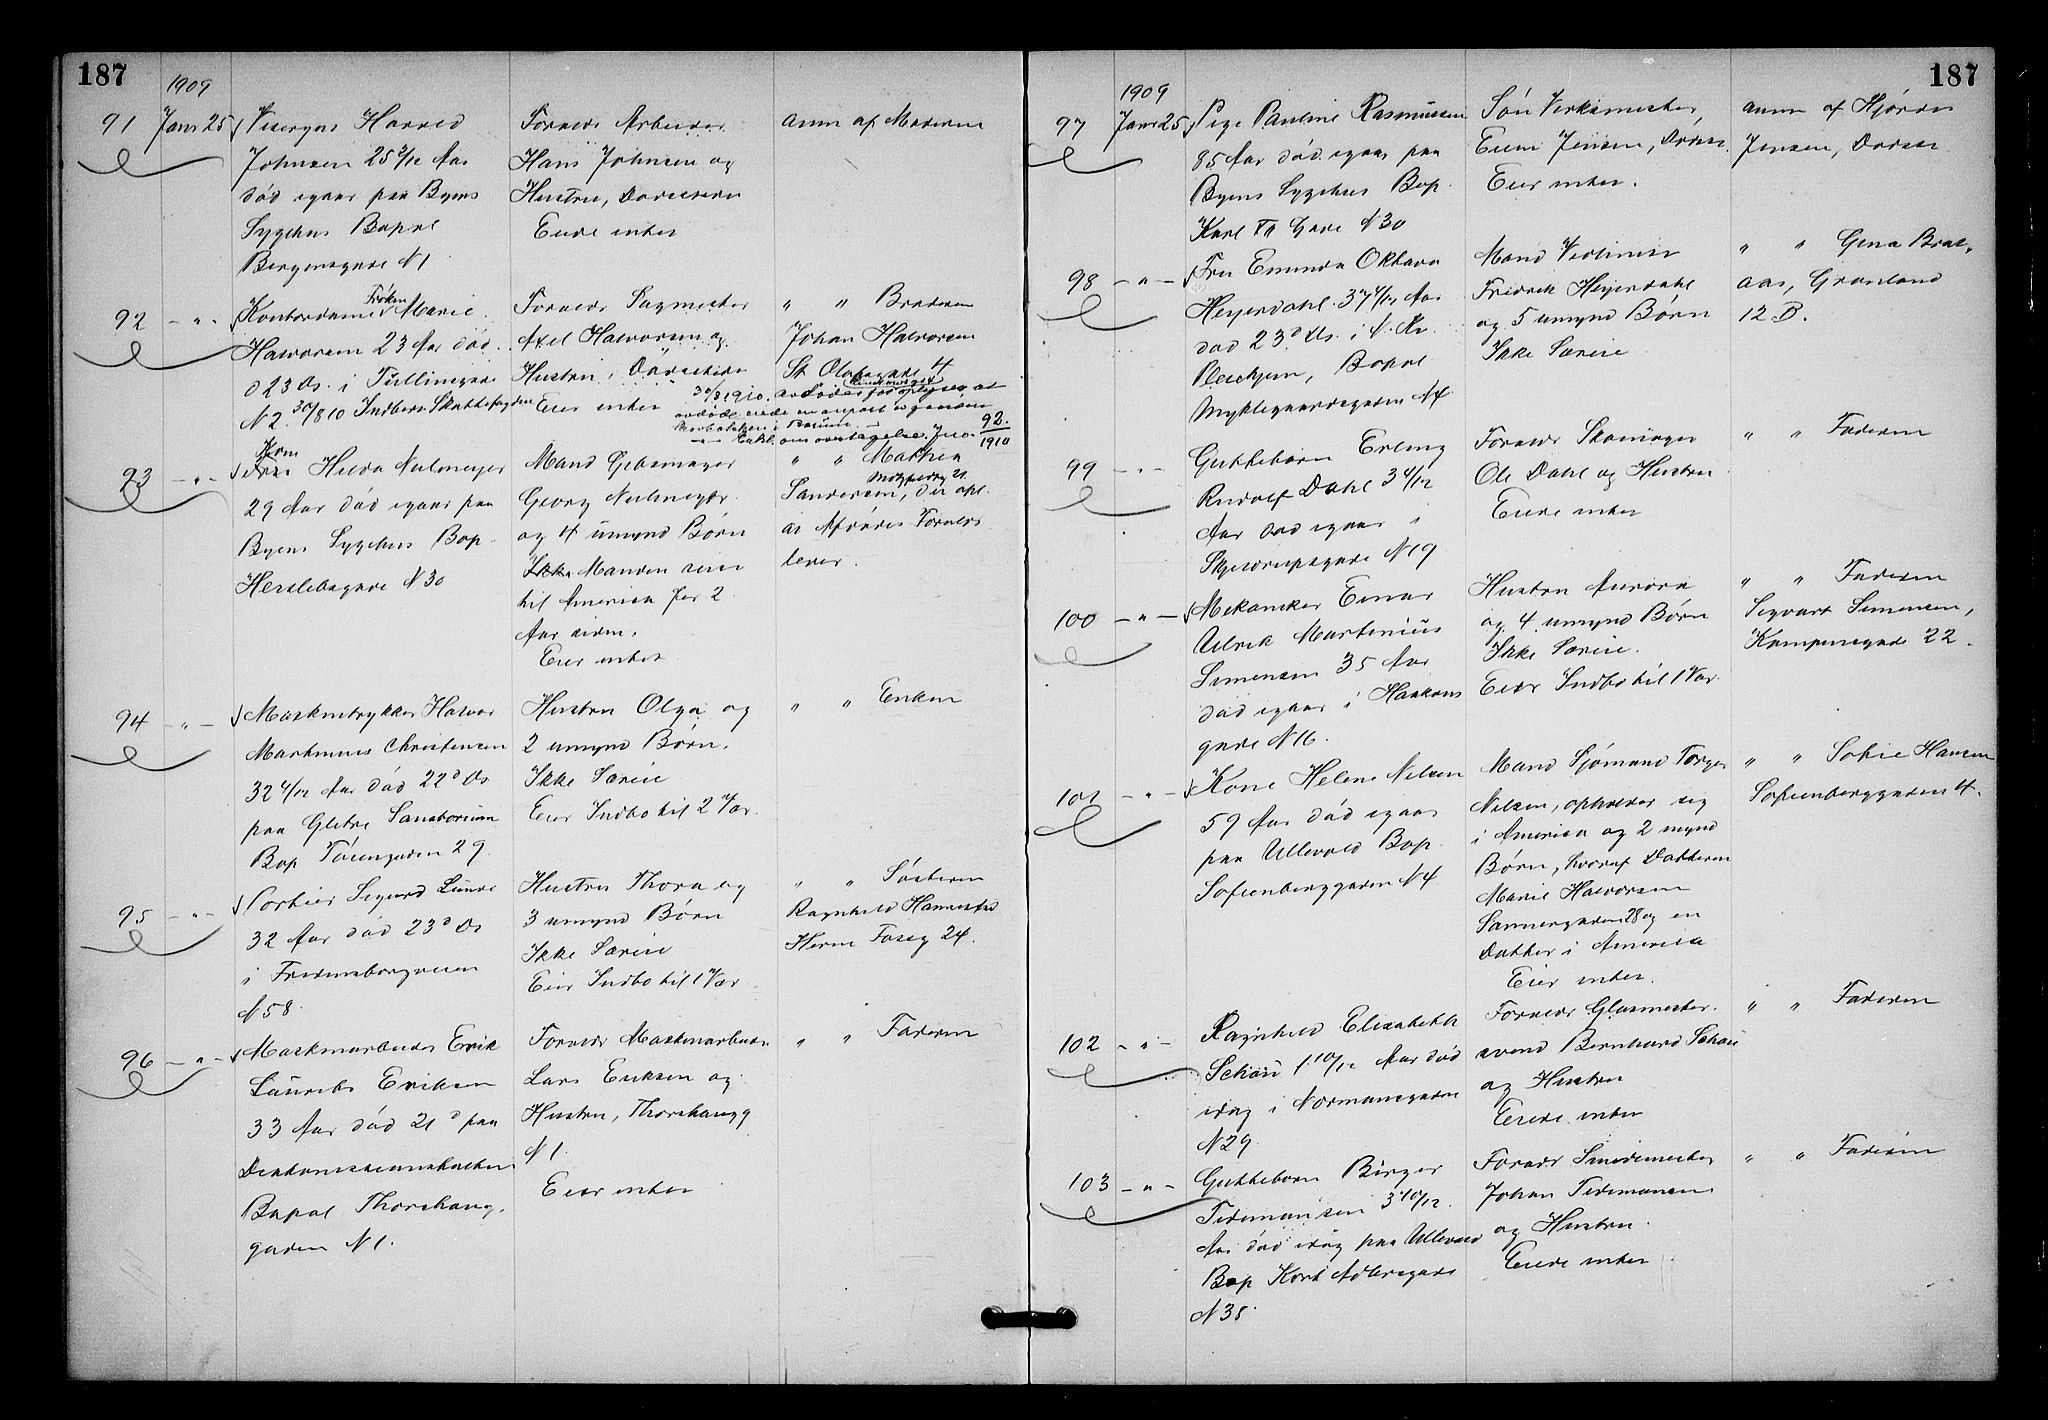 187
1909
91 Janr 25 Visergut Harald
Johnsen 25 2/12 Aar
død igaar paa Byens
Sygehus Bopæl
Bergensgade N 1
Forældr Arbeider
Hans Johnsen og
Hustru, Dødsstedet
Eiede intet
anm af Moderen
92 - " - Kontordame Frøken Marie
Halvorsen 23 Aar død
d 23 Ds. i Tullinsgade
N 2. 30/8 10 Indber. Skattefogden
Forældr Sagmester
Axel Halvorsen og
Hustru, Dødsstedet
Eier intet
" " Broderen
Johan Halvorsen
St. Olafsgade 4
30/8 1910. avdødes før oplyser at
avdøde eiede en anpart av gaarden
i Bærum.
- " - Erkl. om overtagelse Jno. 92/1910
93 - " - Kone Hulda Nulmeyer
29 Aar død igaar paa
Byens Sygehus Bop.
Herslebsgade N 30
Mand Gibsmager
Georg Nulmeyer
og 4 umynd Børn
Ikke Manden reist
til America for 2
Aar siden.
Eier intet
" " Mathea
Sandersen, der opl.
at Afdødes Forældre
lever.
94 - " - Maskintrykker Halvor
Martinius Christensen
32 4/12 Aar død 22 d Ds
paa Glitre Sanatorium
Bop Tøiengaden 29
Hustru Olga og
2 umynd Børn.
Ikke Særeie
Eier Indbo til 2 Vær.
" " Enken
95 - " - Portier Sigurd Lunde
32 Aar død 23 d Ds
i Fredensborgveien
N 58.
Hustru Thora og
3 umynd Børn
Ikke Særeie
Eier Indbo til 1 Vær
" " Søsteren
Ragnhild Hannestad
Herm Fossg 24.
96 - " - Maskinarbeider Erik
Laurits Eriksen
33 Aar død 21 d paa
Diakonisseanstalten
Bopæl Thorshaug,
gaden N 1.
Forældr Maskinarbeider
Lars Eriksen og
Hustru, Thorshaugg
N 1.
Eier intet
" " Faderen
187
1909
97 Janr 25 Pige Pauline Rasmussen
85 Aar død igaar paa
Byens Sygehus Bop.
Karl XII Gade N 30
Søn Verksmester
Jensen, Dødsst.
Eier intet.
anm af Hjørdis
Jensen, Dødsst
98 - " - Fru Eminda Oktava
Heyerdahl 37 4/12 Aar
død 23 d Ds. i St. Kr.
Pleiehjem, Bopæl
Myklegaardsgaden N 4
Mand Violinist
Fridrik Heyerdahl
og 5 umynd Børn
Ikke Særeie
" " Gina Braa-
aas, Grønland
12 B.
99 - " - Guttebarn Erling
Rudolf Dahl 3 4/12
Aar død igaar i
Skjeldrupsgade N 19
Forældr Skomager
Ole Dahl og Hustru
Eiede intet
" " Faderen
100 - " - Mekaniker Einar
Ulrik Martinius
Simensen 35 Aar
død igaar i Haakons
gade N 16.
Hustru Aurora
og 4 umynd Børn
Ikke Særeie.
Eier Indbo til 1 Vær.
" " Faderen
Sigvart Simensen,
Kampensgade 22.
101 - " - Kone Helene Nilsen
59 Aar død igaar
paa Ullevold Bop.
Sofienberggaden N 4
Mand Sjømand Torger
Nilsen, opholder sig
i America og 2 mynd
Børn, hvoraf Datteren
Marie Halvorsen
Sannergaden 28 og en
Datter i America
Eier intet.
" " Sofie Hansen
Sofienberggaden 4.
102 - " - Ragnhild Elisabeth
Schau 1 10/12 Aar død
idag i Normansgaden
N 29
Forældr Glasmester-
svend Bernhard Schau
og Hustru
Eiede intet
" " Faderen
103 - " - Guttebarn Birger
Tidemansen 3 10/12
Aar død idag paa Ullevold
Bop Kort Adlersgade
N 35
Forældr Smedemester
Johan Tidemansen
og Hustru.
Eiede intet
" " Faderen